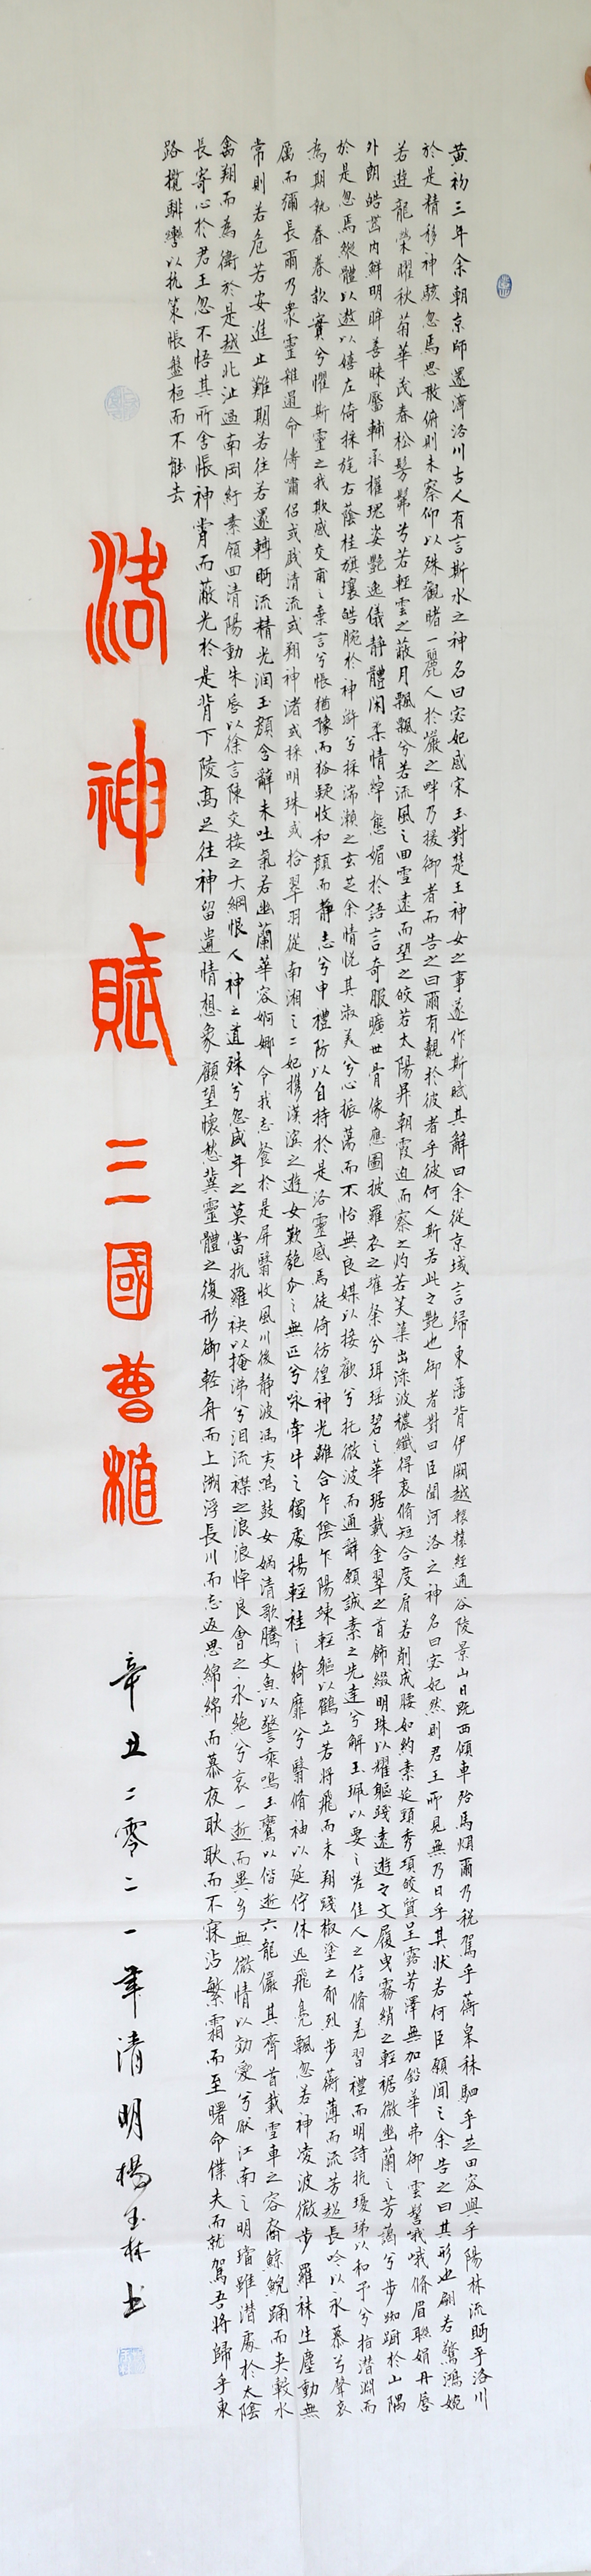 黄初三年余朝京師還濟洛川古人有言斯水之神名曰宓妃感宋玉對楚王神女之事遂作斯賦其辭曰余從京域言歸東藩背伊闕越轘轅經通谷陵景山日既西傾車殆馬煩爾乃稅駕乎蘅皋秣駟乎芝田容與乎陽林流眄乎洛川
於是精移神駭忽焉思散俯則未察仰以殊觀睹一麗人於巖之畔乃援御者而告之曰爾有覿於彼者乎彼何人斯若此之艷也御者對曰臣聞河洛之神名曰宓妃然則君王所見無乃日乎其狀若何臣願聞之余告之曰其形也翩若驚鴻婉
若遊龍榮曜秋菊華茂春松髣髴兮若輕雲之蔽月飄飄兮若流風之回雪遠而望之皎若太陽昇朝霞迫而察之灼若芙蕖出淥波穠纖得衷脩短合度肩若削成腰如約素延頸秀項皓質呈露芳澤無加鉛華弗御雲髻峨峨脩眉聯娟丹唇
外朗皓齒內鮮明眸善睞靨輔承權瑰姿艷逸儀靜體閑柔情綽態媚於語言奇服曠世骨像應圖披羅衣之璀粲兮珥瑤碧之華琚戴金翠之首飾綴明珠以耀軀踐遠遊之文履曳霧綃之輕裾微幽蘭之芳藹兮步踟躕於山隅
於是忽焉縱體以遨以嬉左倚採旄右蔭桂旗攘皓腕於神滸兮採湍瀨之玄芝余情悅其淑美兮心振蕩而不怡無良媒以接歡兮托微波而通辭願誠素之先達兮解玉珮以要之嗟佳人之信脩羌習禮而明詩抗瓊珶以和予兮指潛淵而
為期執眷眷款實兮懼斯靈之我欺感交甫之棄言兮悵猶豫而狐疑收和顏而靜志兮申禮防以自持於是洛靈感焉徙倚彷徨神光離合乍陰乍陽竦輕軀以鶴立若將飛而未翔踐椒塗之郁烈步蘅薄而流芳超長吟以永慕兮聲哀
厲而彌長爾乃衆靈雜遝命儔嘯侶或戲清流或翔神渚或採明珠或拾翠羽從南湘之二妃攜漢濱之遊女歎匏瓜之無匹兮咏牽牛之獨處揚輕袿之綺靡兮翳脩袖以延佇休迅飛鳧飄忽若神凌波微步羅袜生塵動無
常則若危若安進止難期若往若還轉眄流精光潤玉顏含辭未吐氣若幽蘭華容婀娜令我忘餐於是屏翳收風川後靜波馮夷鳴鼓女媧清歌騰文魚以警乘鳴玉鸞以偕逝六龍儼其齊首載雲車之容裔鯨鯢踊而夾轂水
禽翔而為衛於是越北沚過南岡紆素領回清陽動朱唇以徐言陳交接之大綱恨人神之道殊兮怨盛年之莫當抗羅袂以掩涕兮淚流襟之浪浪悼良會之永絕兮哀一逝而異鄉無微情以効愛兮獻江南之明璫雖潛處於太陰
長寄心於君王忽不悟其所舍悵神宵而蔽光於是背下陵高足往神留遺情想象顧望懷愁冀靈體之復形御輕舟而上溯浮長川而忘返思綿綿而慕夜耿耿而不寐沾繁霜而至曙命僕夫而就駕吾將歸乎東
路攬騑轡以抗策悵盤桓而不能去
洛神賦 三國曹植
辛丑二零二一年清明楊玉林书